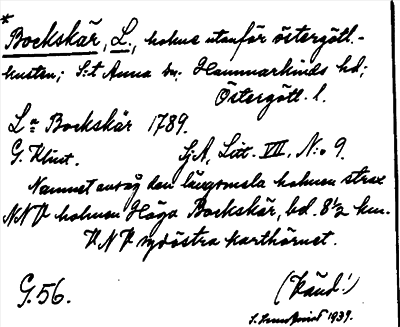 *
Bockskär, L., holme utanför östergötl.-
kusten; S:t Anna sn; Hammarkinds hd;
Östergötl. l.
La Bockskär 1789.
G. Klint. SjA, Litt. VII, N:o 9.
Namnet avsåg den långsmala holmen strax
NNV holmen Höga Bockskär, bd. 8½ km.
VNV sydöstra karthörnet.
G. 56. (Känd!)
1939.